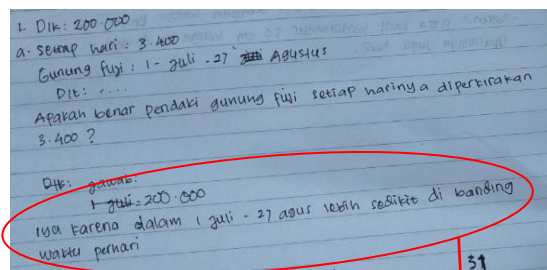 1. Dik: 200.000
a. setiap hari : 3.400
Gunung fuji : 1 - juli - 27 Agustus
Dit: ....
Apakah benar pendaki gunung fuji setiap harinya diperkirakan
3.400 ?
Dik: jawab:
1 juli = 200.000
iya karena dalam 1 juli - 27 agus lebih sedikit di banding
waktu perhari
31